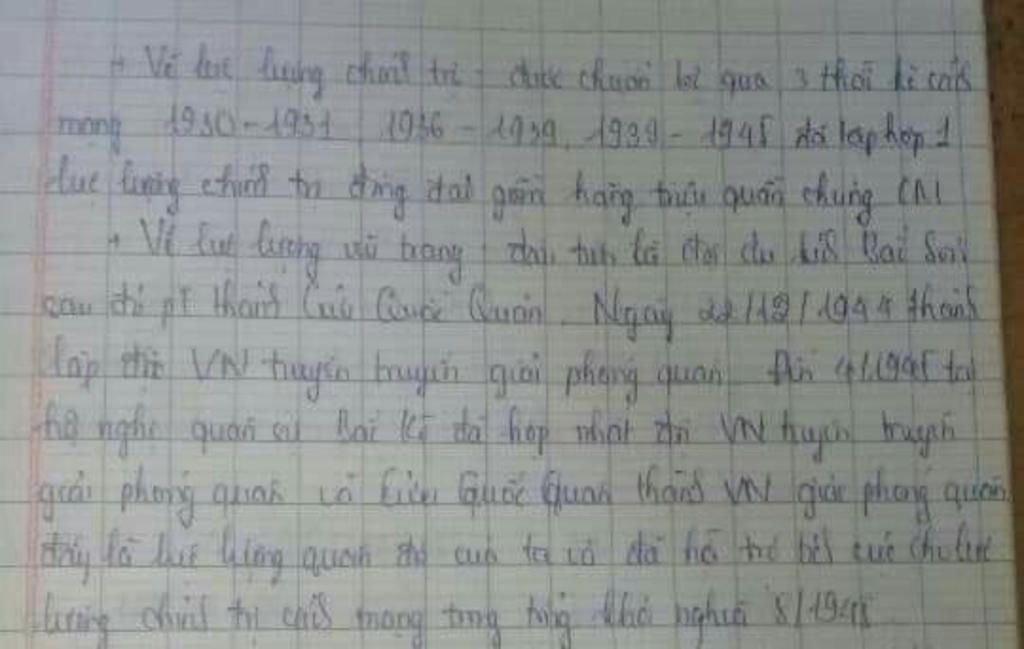 + Về lực lượng chính trị : được chuẩn bị qua 3 thời kì cách
mạng 1930-1931 1936-1939, 1939-1945 đã tập hợp 1
lực lượng chính trị đông đảo gồm hàng triệu quần chúng CM
+ Về lực lượng vũ trang : đầu tiên là đội du kích Bắc Sơn
sau đó pt thành Cứu Quốc Quân. Ngày 22/12/1944 thành
lập đội VN tuyên truyền giải phóng quân. Đến 4/1945 tại
hộ nghị quân sự Bắc Kì đã hợp nhất đội VN tuyên truyền
giải phóng quân và Cứu Quốc Quân thành VN giải phóng quân
đây là lực lượng quân đội của ta và đã hỗ trợ tích cực cho lực
lượng chính trị cách mạng trong tổng khởi nghĩa 8/1945